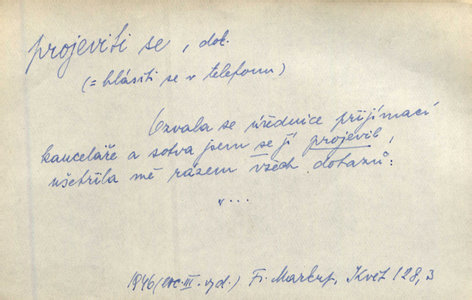 projeviti se, dok.
(= hlásiti se v telefonu)
Ozvala se úřednice přijímací
kanceláře a sotva jsem se jí projevil,
ušetřila mě rázem všech dotazů:
"...
1946 (etc. III. vyd.) Fr. Markup, Květ 128,3